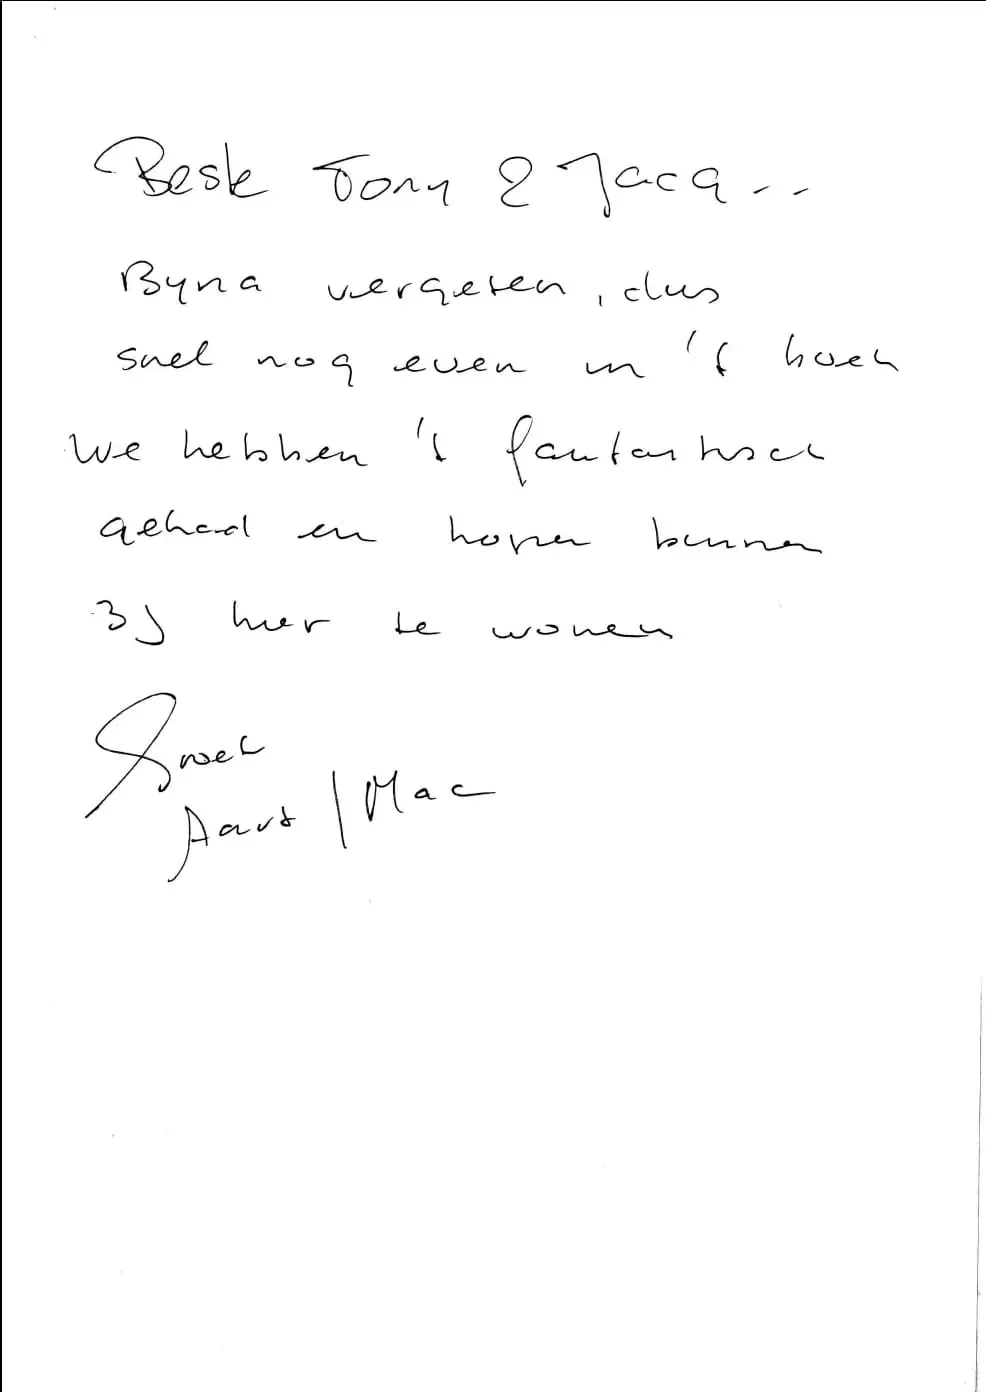 Beste Tony & Jacq..
Byna vergeten, dus
snel nog even in 't boek
We hebben 't fantastisch
gehad en hopen binnen
3J hier te wonen
Groet
Aart / Mac